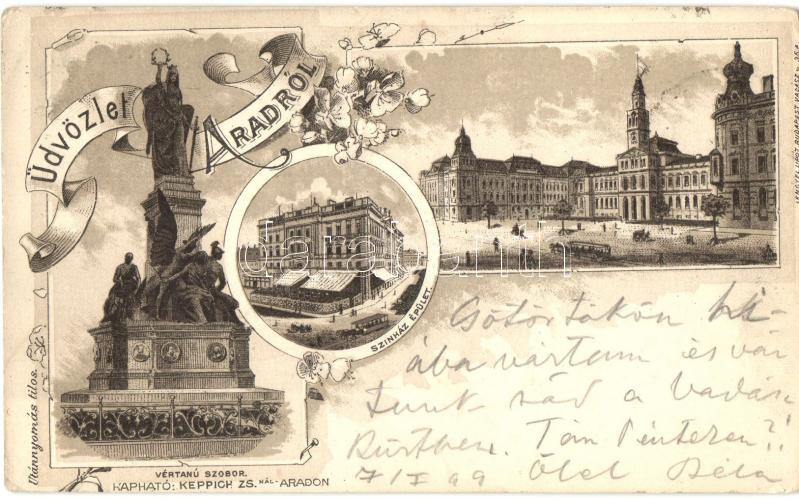 Üdvözlet
ARADRÓL
SZINHÁZ ÉPÜLET.
Utánnyomás tilos.
VÉRTANÚ SZOBOR.
KAPHATÓ: KEPPICH ZS. NÁL ARADON
darabanth
Csötörtökön
ába vártam és vár
tunk rád a Vadász
Kürtben. Tán Pénteken?!
7/I 99 Ölel Béla